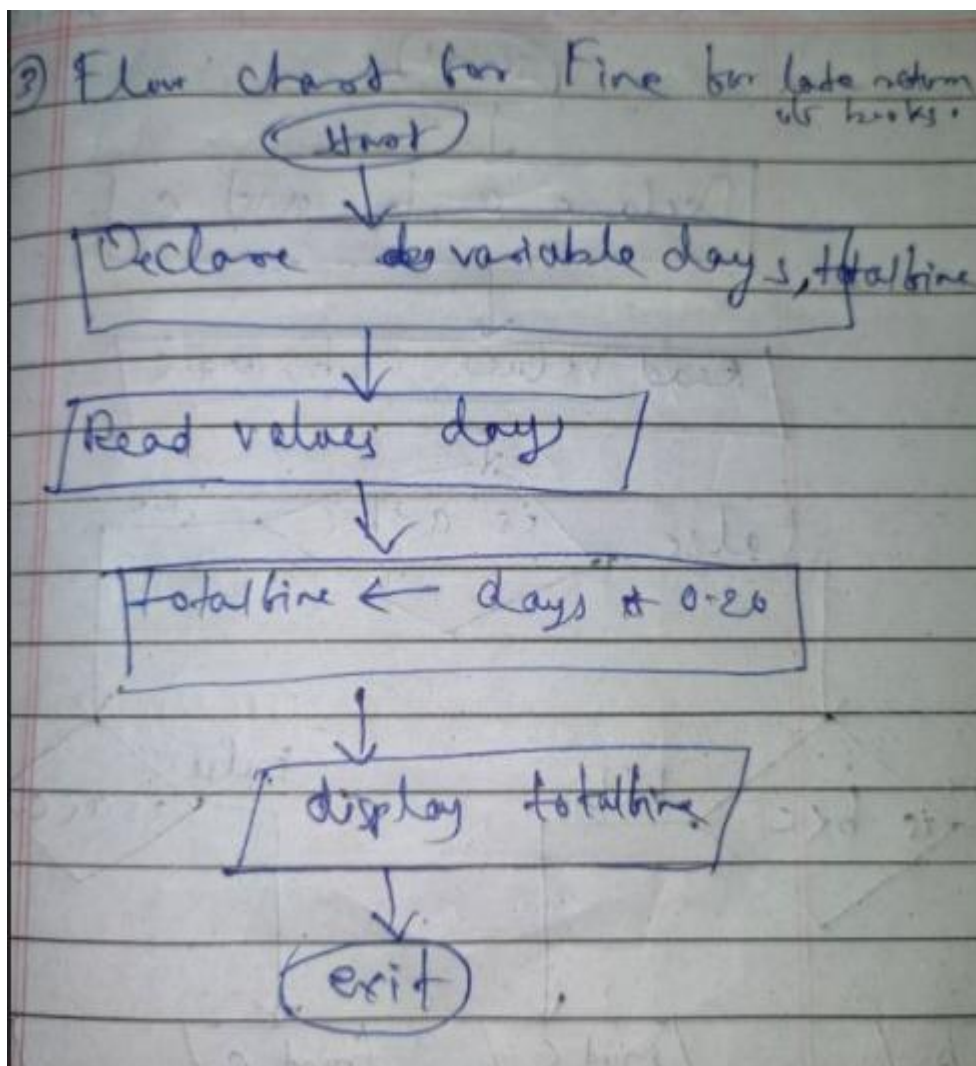 ③ Flow chart for Fine for late return
of books.
Start
Declare variable days, totalfine
Read values days
totalfine ← days * 0.20
display totalfine
exit